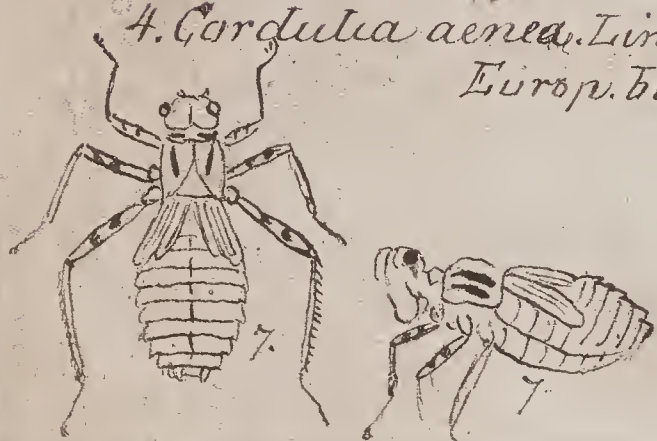 4. Cordulia aenea. Lin
Europ. b
7.
7.